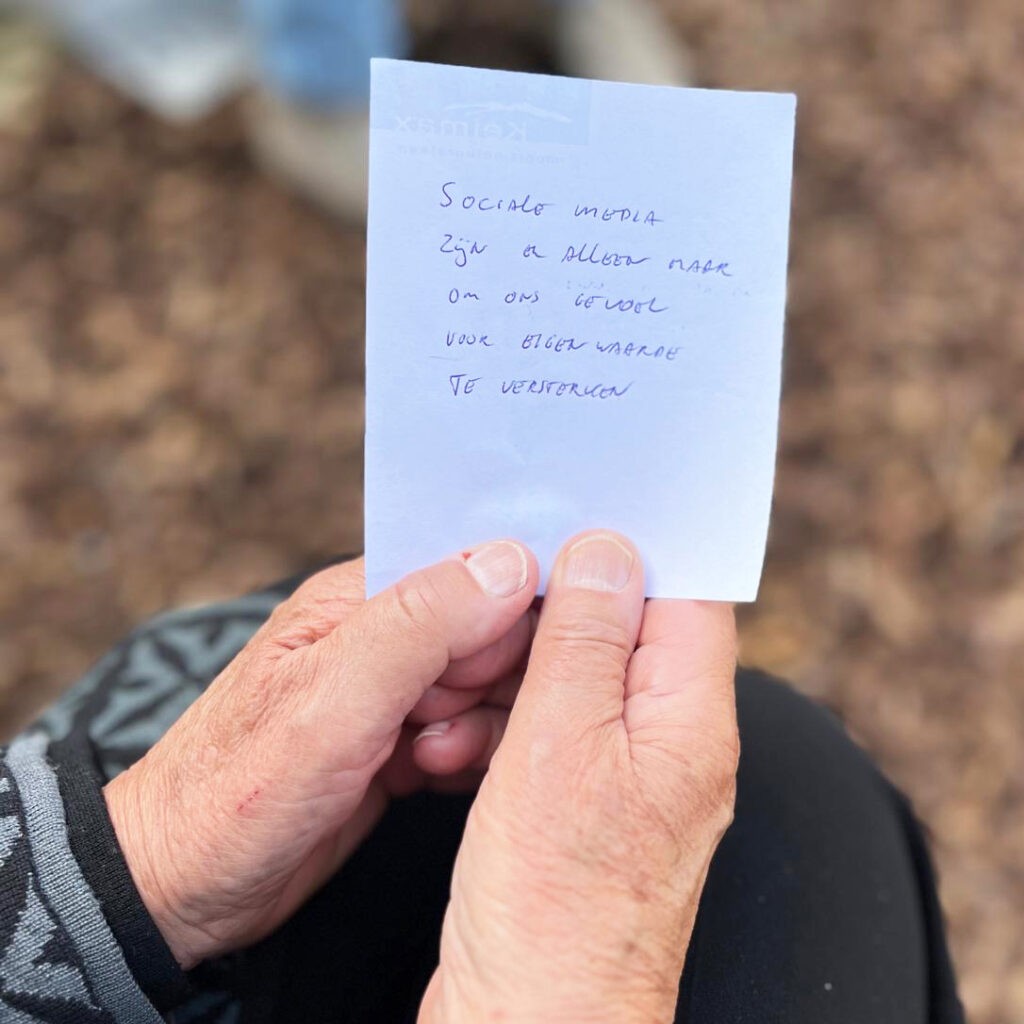 Keimax
SOCIALE MEDIA
ZIJN ER ALLEEN MAAR
OM ONS GEVOEL
VOOR EIGENWAARDE
TE VERSTERKEN